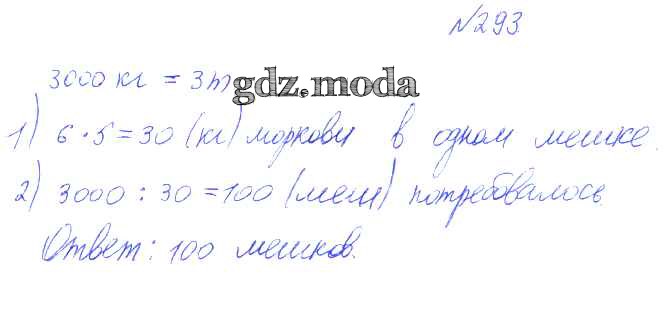 №293.
3000 кг = 3т gdz.moda
1) 6 · 5 = 30 (кг) моркови в одном мешке.
2) 3000 : 30 = 100 (меш) потребовалось
Ответ: 100 мешков.